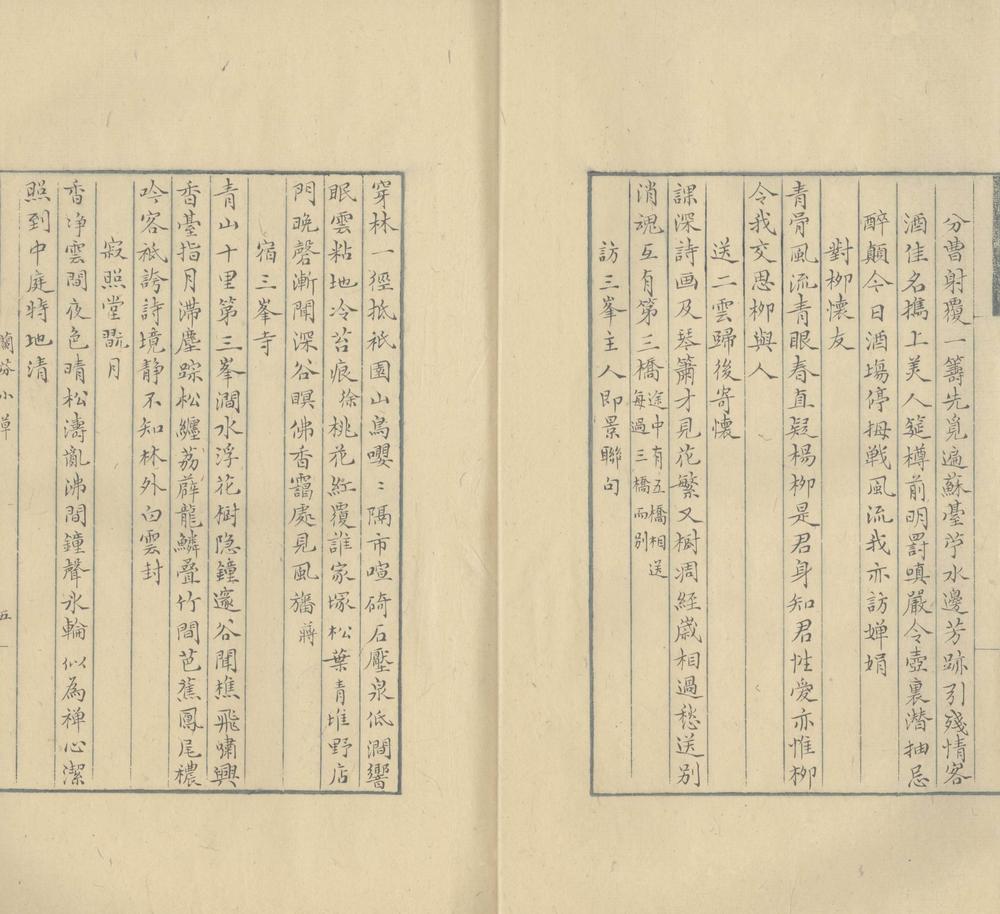 分曹射覆一籌先覓遍蘇臺苧水邊芳跡引殘情客
酒佳名擕上美人筵樽前明罰嗔嚴令壺裏潜抽忌
醉顛今日酒塲停拇戦風流我亦訪嬋娟
對柳懷友
青骨風流青眼春直疑楊柳是君身知君性愛亦惟柳
令我交思柳與人
送二雲歸後寄懷
課深詩画及琴簫才見花繁又樹凋經歲相過愁送别
消魂互有第三橋途中有五橋相送每過三橋而别
訪三峯主人即景聯句
穿林一徑抵祇園山鳥嚶〻隔市喧碕石壓泉低澗響
眠雲粘地冷苔痕徐桃花紅覆誰家塚松葉青堆野店
門晚磬漸聞深谷暝佛香靄處見風旛蔣
宿三峯寺
青山十里第三峯澗水浮花樹隐鐘邃谷聞樵飛嘯興
香臺指月滯塵踪松纏荔薜龍鱗疊竹間芭蕉鳳尾穠
吟客祗誇詩境静不知林外白雲封
寂照堂翫月
香净雲間夜色晴松濤亂沸間鐘聲氷輪似為禅心潔
照到中庭特地清
蘭谿小草
五